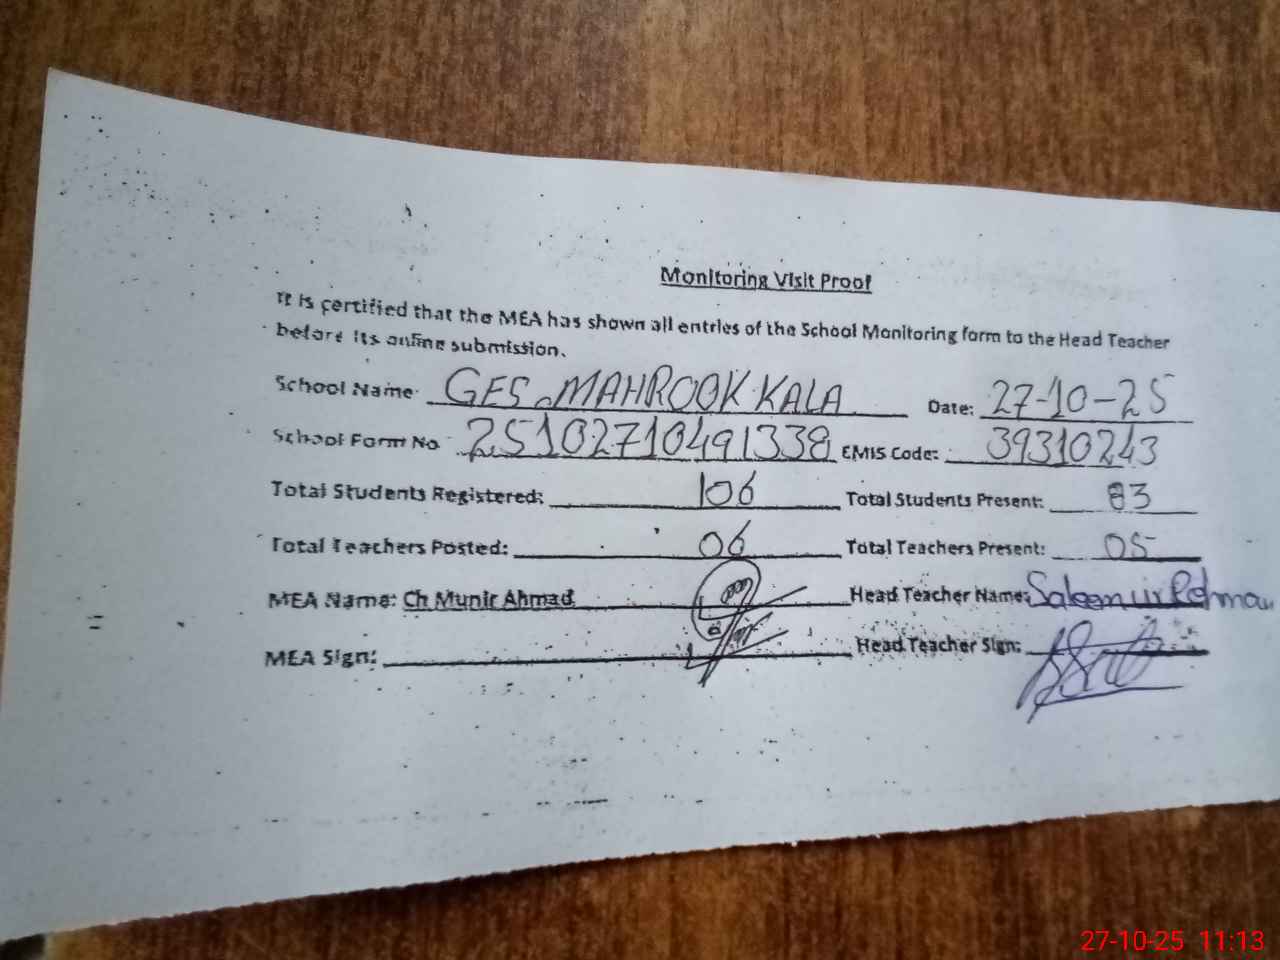 Monitoring Visit Proof
It is certified that the MEA has shown all entries of the School Monitoring form to the Head Teacher
before its online submission.
School Name: GES MAHROOK KALA Date: 27-10-25
School Form No 2510271049 1338 EMIS Code: 39310243
Total Students Registered: 106 Total Students Present: 83
Total Teachers Posted: 06 Total Teachers Present: 05
MEA Name: Ch Munir Ahmad Head Teacher Name: Saleem ur Rehman
MEA Sign: Head Teacher Sign:
27-10-25 11:13